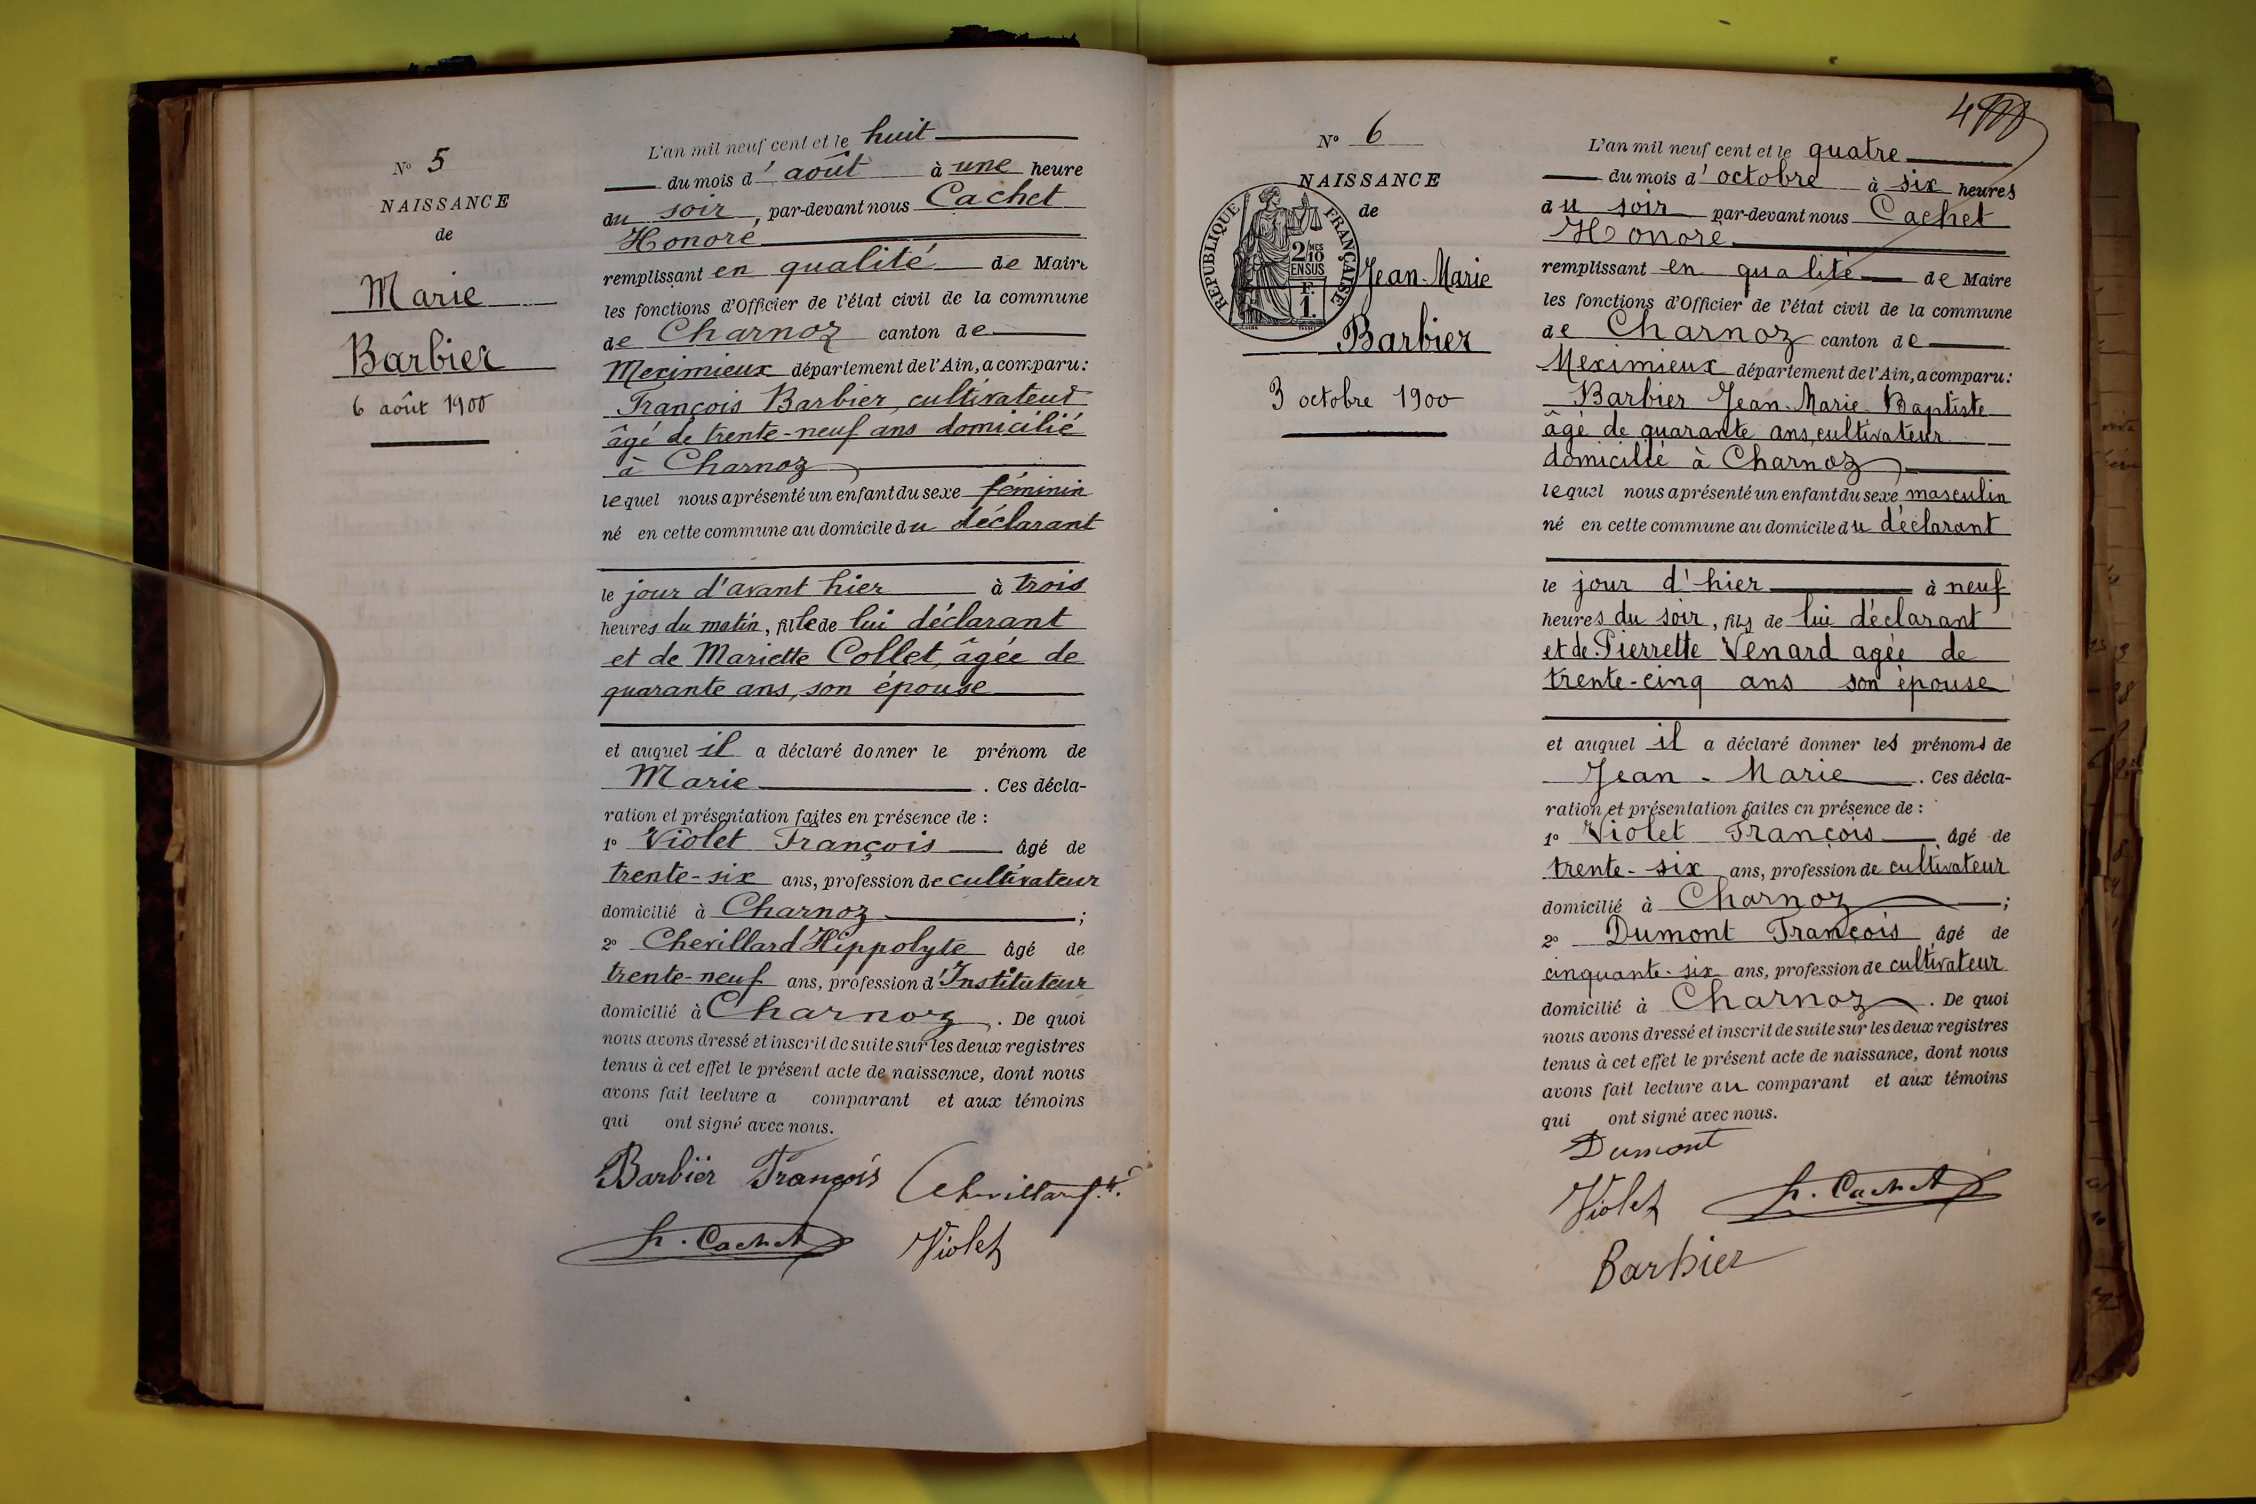 N° 5
NAISSANCE
de
Marie
Barbier
6 août 1900
L'an mil neuf cent et le huit
du mois d' août à une heure
du soir, par-devant nous Cachet
Honoré
remplissant en qualité de Maire
les fonctions d'Officier de l'état civil de la commune
de Charnoz canton de
Meximieux département de l'Ain, a comparu :
François Barbier, cultivateur
âgé de trente-neuf ans domicilié
à Charnoz
lequel nous a présenté un enfant du sexe féminin
né en cette commune au domicile du déclarant
le jour d'avant hier à trois
heures du matin, fille de lui déclarant
et de Mariette Collet, âgée de
quarante ans, son épouse
et auquel il a déclaré donner le prénom de
Marie. Ces décla-
ration et présentation faites en présence de :
1° Violet François âgé de
trente-six ans, profession de cultivateur
domicilié à Charnoz ;
2° Chevillard Hippolyte âgé de
trente-neuf ans, profession d'Instituteur
domicilié à Charnoz. De quoi
nous avons dressé et inscrit de suite sur les deux registres
tenus à cet effet le présent acte de naissance, dont nous
avons fait lecture a comparant et aux témoins
qui ont signé avec nous.
Barbier François Chevillard
h. Cachet Violet
4
N° 6
NAISSANCE
de
RÉPUBLIQUE FRANÇAISE
2/10 MES
EN SUS
F.
1.
Jean-Marie
Barbier
3 octobre 1900
L'an mil neuf cent et le quatre
du mois d' octobre à six heures
du soir par-devant nous Cachet
Honoré
remplissant en qualité de Maire
les fonctions d'Officier de l'état civil de la commune
de Charnoz canton de
Meximieux département de l'Ain, a comparu :
Barbier Jean-Marie Baptiste
âgé de quarante ans, cultivateur
domicilié à Charnoz
lequel nous a présenté un enfant du sexe masculin
né en cette commune au domicile du déclarant
le jour d'hier à neuf
heures du soir, fils de lui déclarant
et de Pierrette Venard agée de
trente-cinq ans son épouse
et auquel il a déclaré donner les prénoms de
Jean-Marie. Ces décla-
ration et présentation faites en présence de :
1° Violet François âgé de
trente-six ans, profession de cultivateur
domicilié à Charnoz ;
2° Dumont François âgé de
cinquante-six ans, profession de cultivateur
domicilié à Charnoz. De quoi
nous avons dressé et inscrit de suite sur les deux registres
tenus à cet effet le présent acte de naissance, dont nous
avons fait lecture au comparant et aux témoins
qui ont signé avec nous.
Dumont
Violet h. Cachet
Barbier